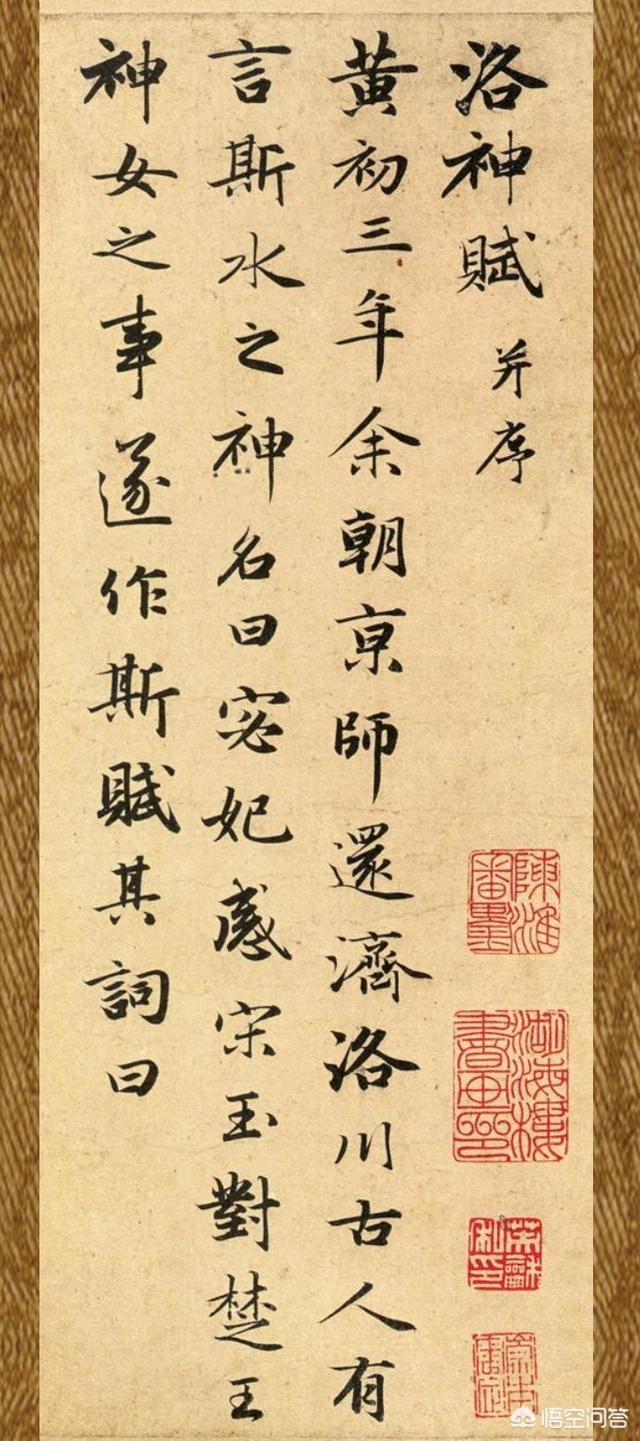 洛神賦并序
黃初三年余朝京師還濟洛川古人有
言斯水之神名曰宓妃感宋玉對楚王
神女之事遂作斯賦其詞曰
陳淮
湖海樓
書画印
悟空问答